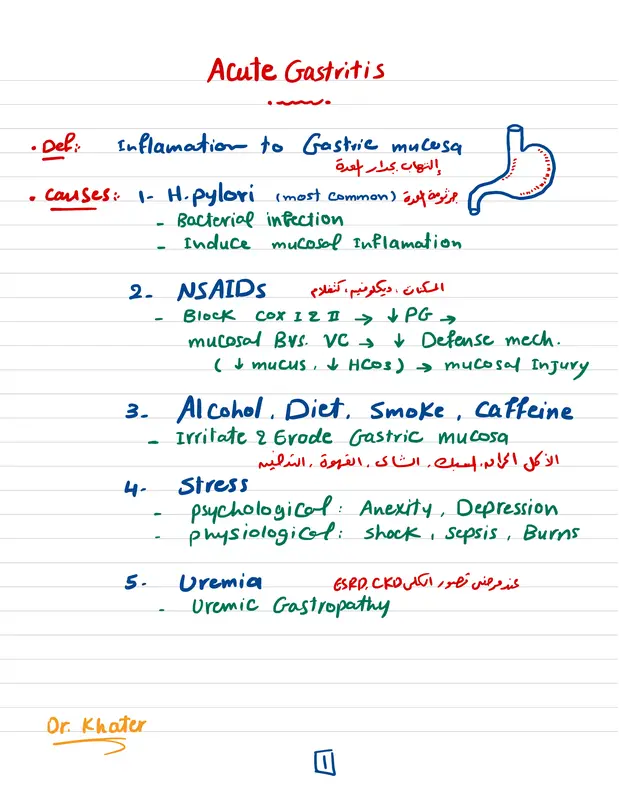 Acute Gastritis
• Def: Inflamation to Gastric mucosa
إلتهاب بجدار المعدة
• Causes: 1- H.pylori (most common) جرثومة المعدة
- Bacterial infection
- Induce mucosal Inflamation
2- NSAIDs المسكنات، ديكلوفينه، كتفلام
- Block Cox I & II → ↓ PG →
mucosal BVs. VC → ↓ Defense mech.
( ↓ mucus, ↓ HCO3 ) → mucosal Injury
3- Alcohol, Diet, Smoke, Caffeine
- Irritate & Erode Gastric mucosa
الأكل الحراق، الشاى، القهوة، التدخين
4- Stress
- psychological: Anexity, Depression
- physiological: shock, sepsis, Burns
5- Uremia عند مرضى قصور الكلى ESRD, CKD
- Uremic Gastropathy
Dr. Khater
1